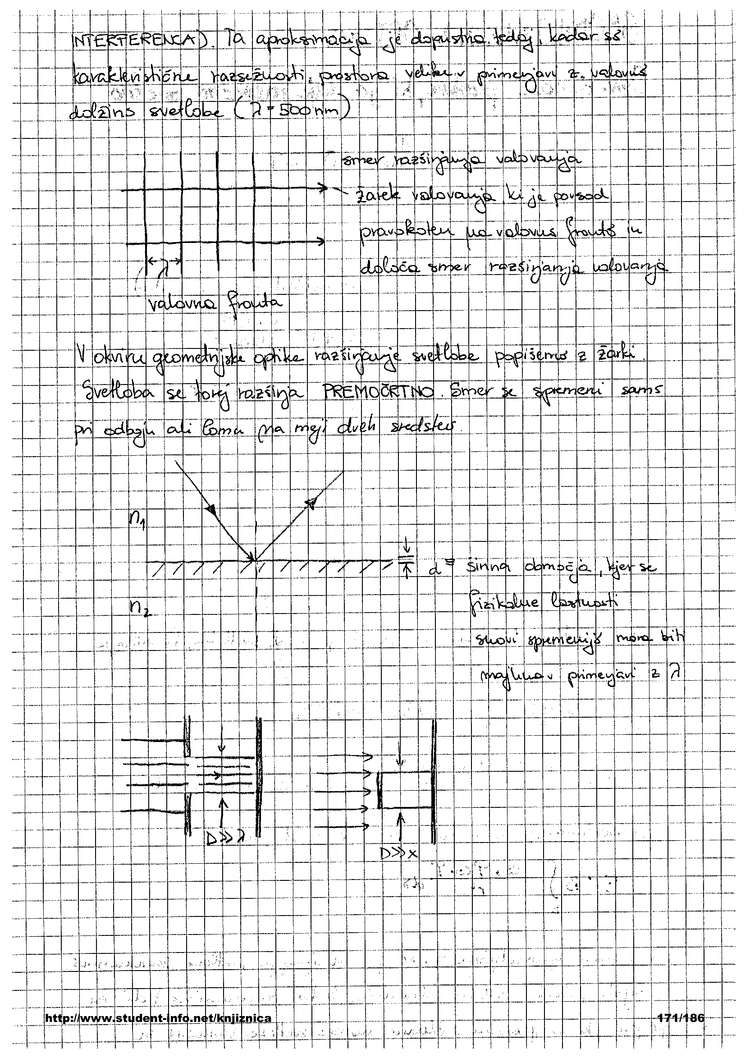 INTERFERENCA). Ta aproksimacija je dopustna tedaj, kadar so
karakteristične razsežnosti prostora velike v primerjavi z valovno
dolžino svetlobe (λ = 500nm)
smer razširjanja valovanja
žarek valovanja ki je povsod
pravokoten na valovno fronto in
določa smer razširjanja valovanja
λ
valovna fronta
V okviru geometrijske optike razširjanje svetlobe popišemo z žarki.
Svetloba se torej razširja PREMOČRTNO. Smer se spremeni samo
pri odboju ali lomu na meji dveh sredstev.
n1
d = širina območja, kjer se
n2
fizikalne lastnosti
snovi spremenijo mora biti
majhna v primerjavi z λ
D>>λ
D>>x
http://www.student-info.net/knjiznica
171/186